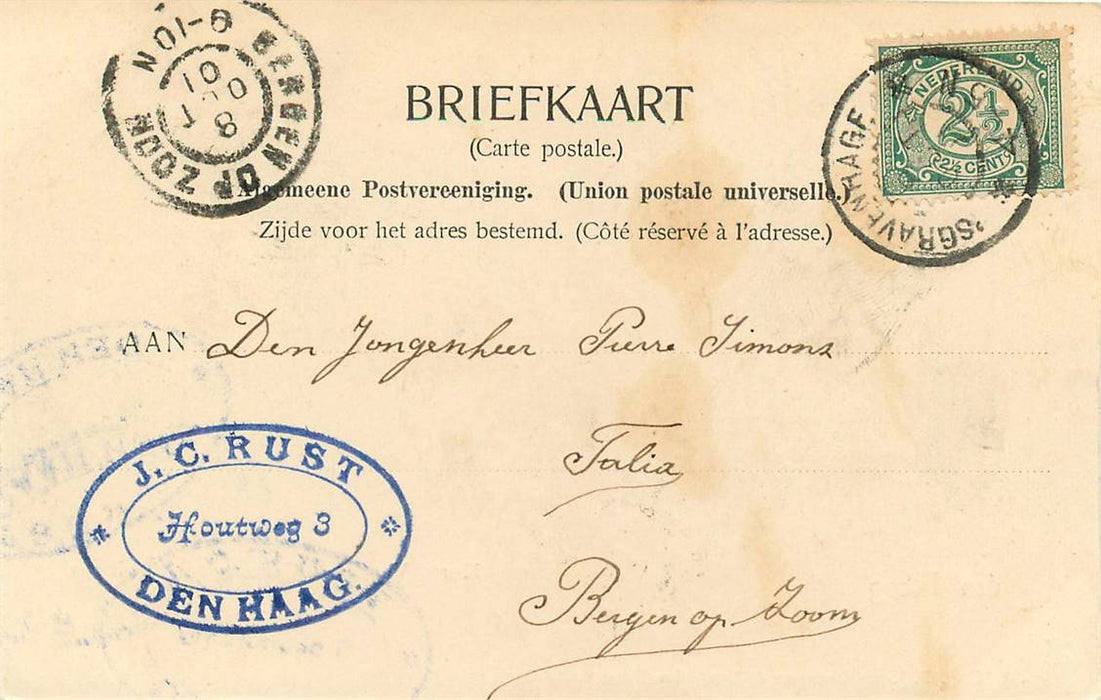 BERGEN OP ZOOM
9-10N
BRIEFKAART
(Carte postale.)
Algemeene Postvereeniging. (Union postale universelle.)
Zijde voor het adres bestemd. (Côté réservé à l'adresse.)
NEDERLAND
2½
2½ CENT
'SGRAVENHAGE
AAN Den Jongenheer Pierre Simons
Talia
Bergen op Zoom
J. C. RUST
Houtweg 3
DEN HAAG.